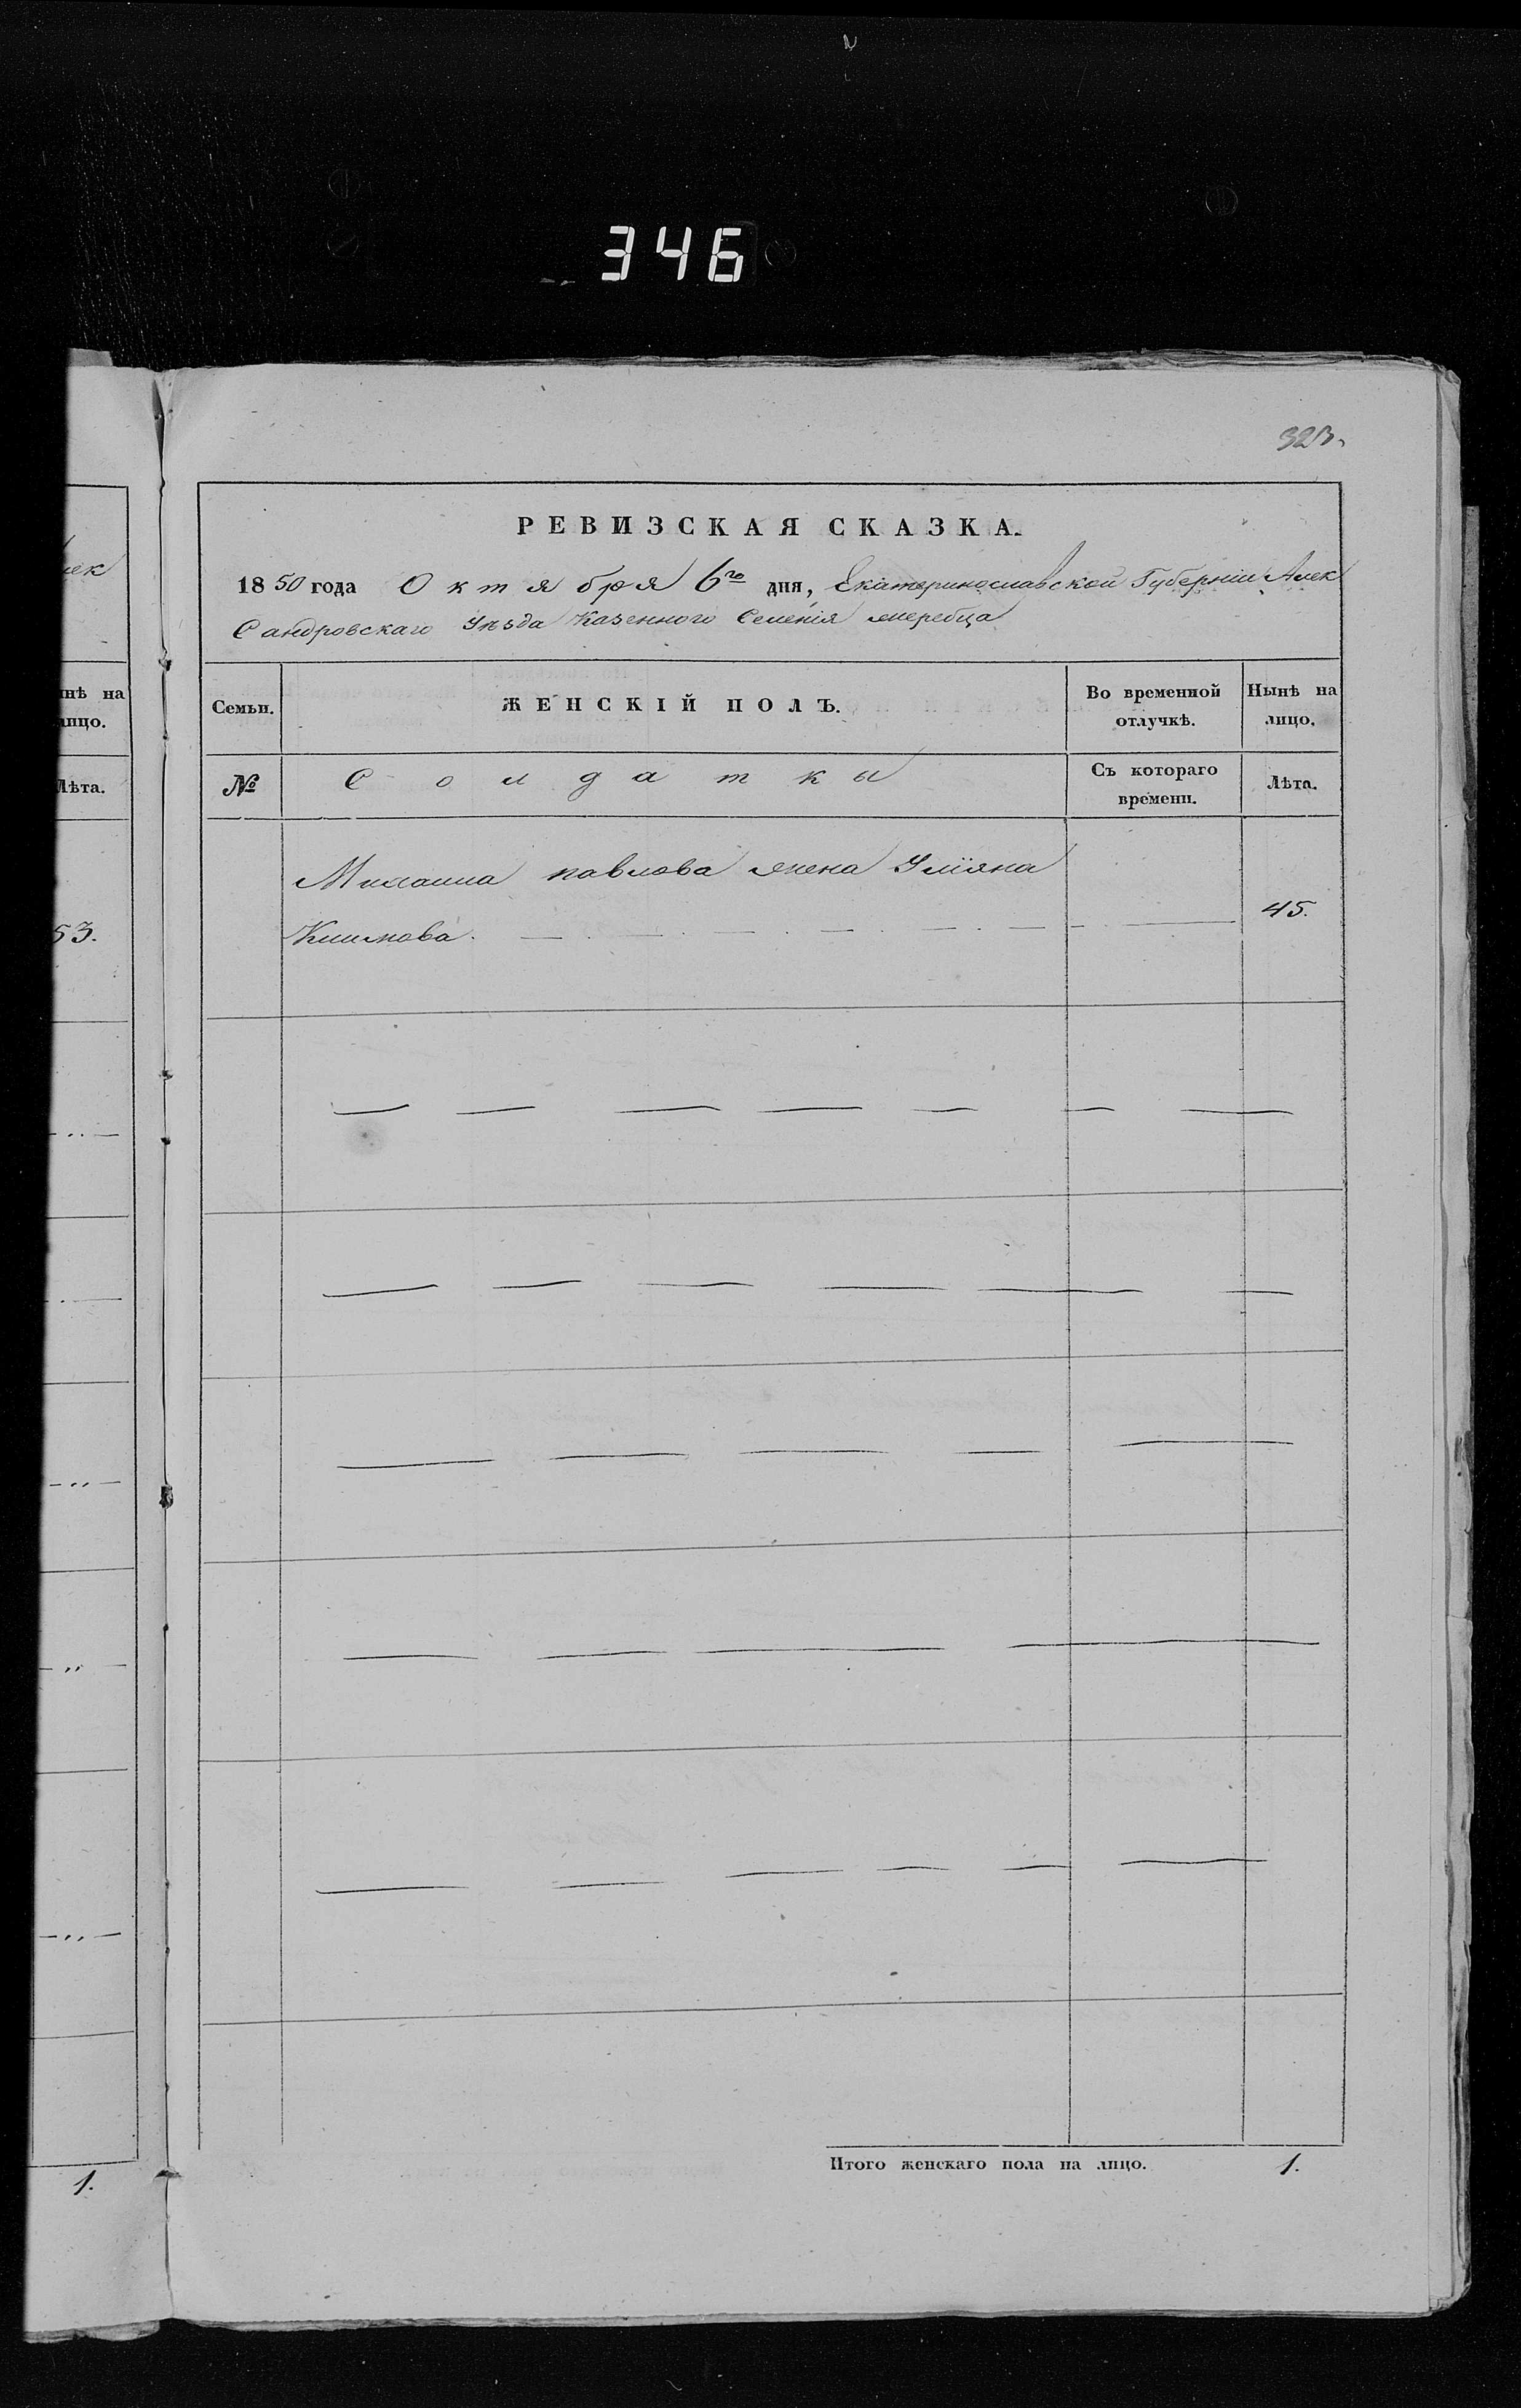 346
323.
РЕВИЗСКАЯ СКАЗКА.
1850 года Октября 6го дня, Екатеринославской Губерніи Алек
Сандровскаго Уѣзда Казенного Селенія жеребца
Семьи.
ЖЕНСКІЙ ПОЛЪ.
Во временной
отлучкѣ.
Нынѣ на
лицо.
№
Солдатки
Съ котораго
времени.
Лѣта.
Михаила павлова жена Уліяна
Климова.
45.
Итого женскаго пола на лицо. 1.
лек
нѣ на
лицо.
Лѣта.
53.
1.